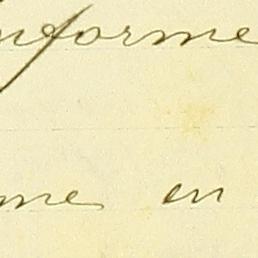 nforme
me en